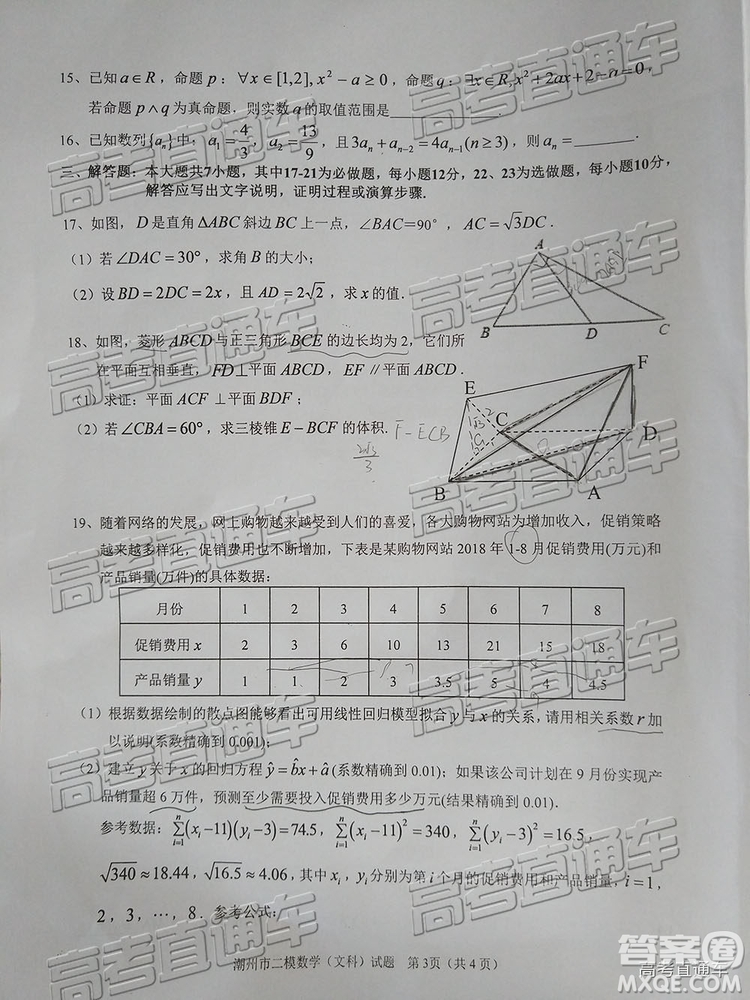 15、已知a∈R，命题p：∀x∈[1,2], x²−a≥0，命题q：∃x∈R, x²+2ax+2−a=0，
若命题p∧q为真命题．则实数a的取值范围是
16、已知数列{aₙ}中：a₁=4/3，a₂=13/9，且3aₙ+aₙ₋₂=4aₙ₋₁(n≥3)，则aₙ=
三、解答题：本大题共7小题，其中17-21为必做题，每小题12分，22、23为选做题，每小题10分，
解答应写出文字说明，证明过程或演算步骤.
17、如图，D是直角ΔABC斜边BC上一点，∠BAC=90°，AC=√3DC．
（1）若∠DAC=30°，求角B的大小；
（2）设BD=2DC=2x，且AD=2√2，求x的值.
A
B D C
18、如图，菱形ABCD与正三角形BCE的边长均为2，它们所
在平面互相垂直，FD⊥平面ABCD，EF∥平面ABCD．
（1）求证：平面ACF⊥平面BDF；
（2）若∠CBA=60°，求三棱锥E−BCF的体积. F-ECB
2√3/3
F
E
C
D
B A
19、随着网络的发展，网上购物越来越受到人们的喜爱，各大购物网站为增加收入，促销策略
越来越多样化，促销费用也不断增加，下表是某购物网站2018年1-8月促销费用(万元)和
产品销量(万件)的具体数据：
月份 1 2 3 4 5 6 7 8
促销费用x 2 3 6 10 13 21 15 18
产品销量y 1 1 2 3 3.5 5 4 4.5
（1）根据数据绘制的散点图能够看出可用线性回归模型拟合y与x的关系，请用相关系数r加
以说明(系数精确到0.001)；
（2）建立y关于x的回归方程ŷ=b̂x+â(系数精确到0.01)；如果该公司计划在9月份实现产
品销量超6万件，预测至少需要投入促销费用多少万元(结果精确到0.01).
参考数据：∑ⁿᵢ₌₁(xᵢ−11)(yᵢ−3)=74.5，∑ⁿᵢ₌₁(xᵢ−11)²=340，∑ⁿᵢ₌₁(yᵢ−3)²=16.5，
√340≈18.44，√16.5≈4.06，其中xᵢ, yᵢ分别为第i个月的促销费用和产品销量，i=1，
2，3，⋯，8．参考公式：
潮州市二模数学（文科）试题 第3页（共4页）
高考直通车
答案圈
MXQE.COM
高考直通车